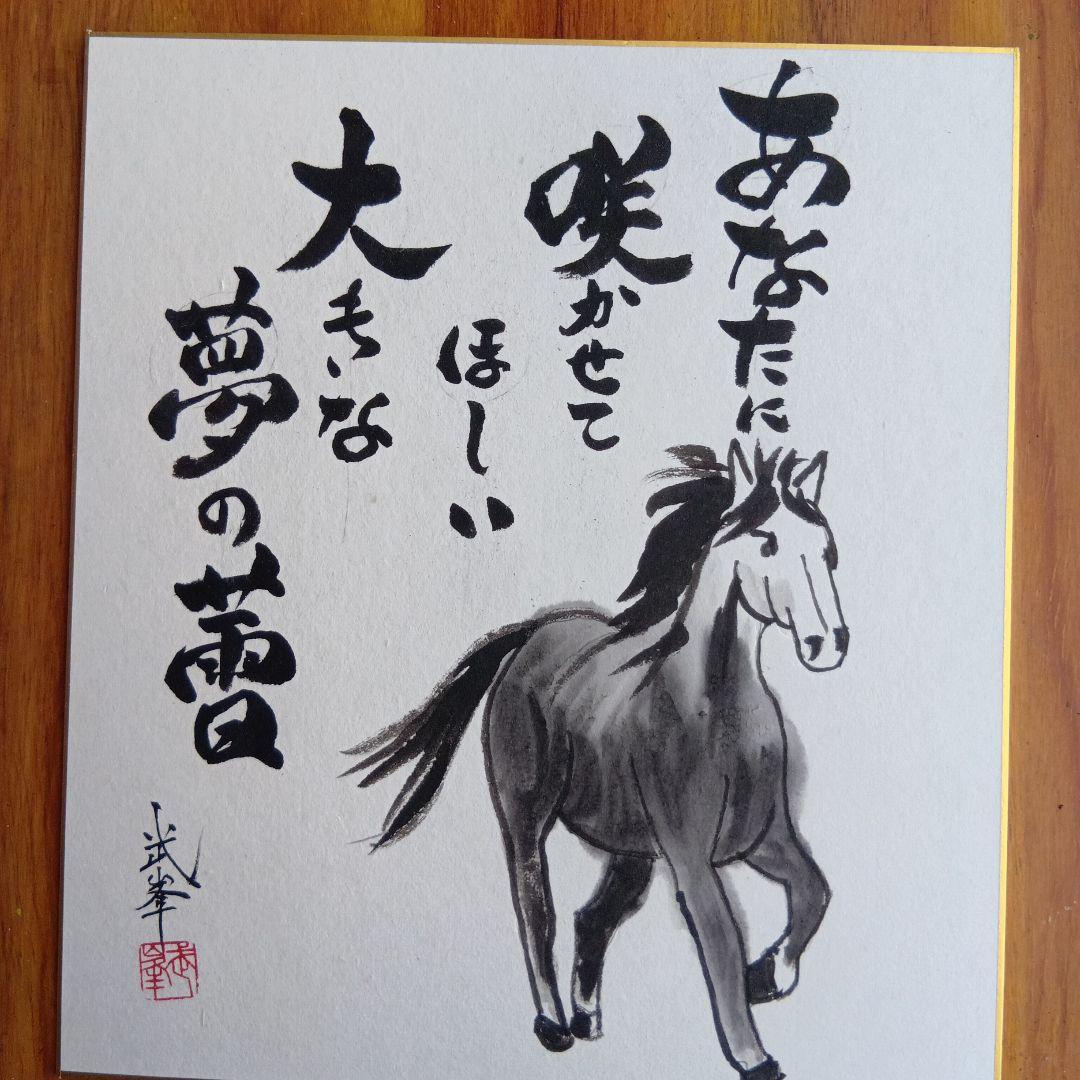 あなたに
咲かせて
ほしい
大きな
夢の蕾
武峯
武峯